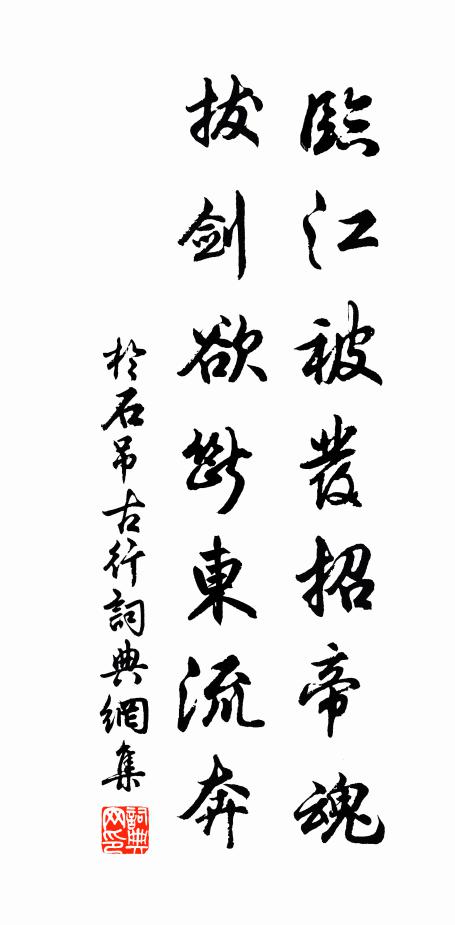 臨江被發招帝魂
拔劍欲斷東流奔
於石吊古行詞典網集
詞典網印